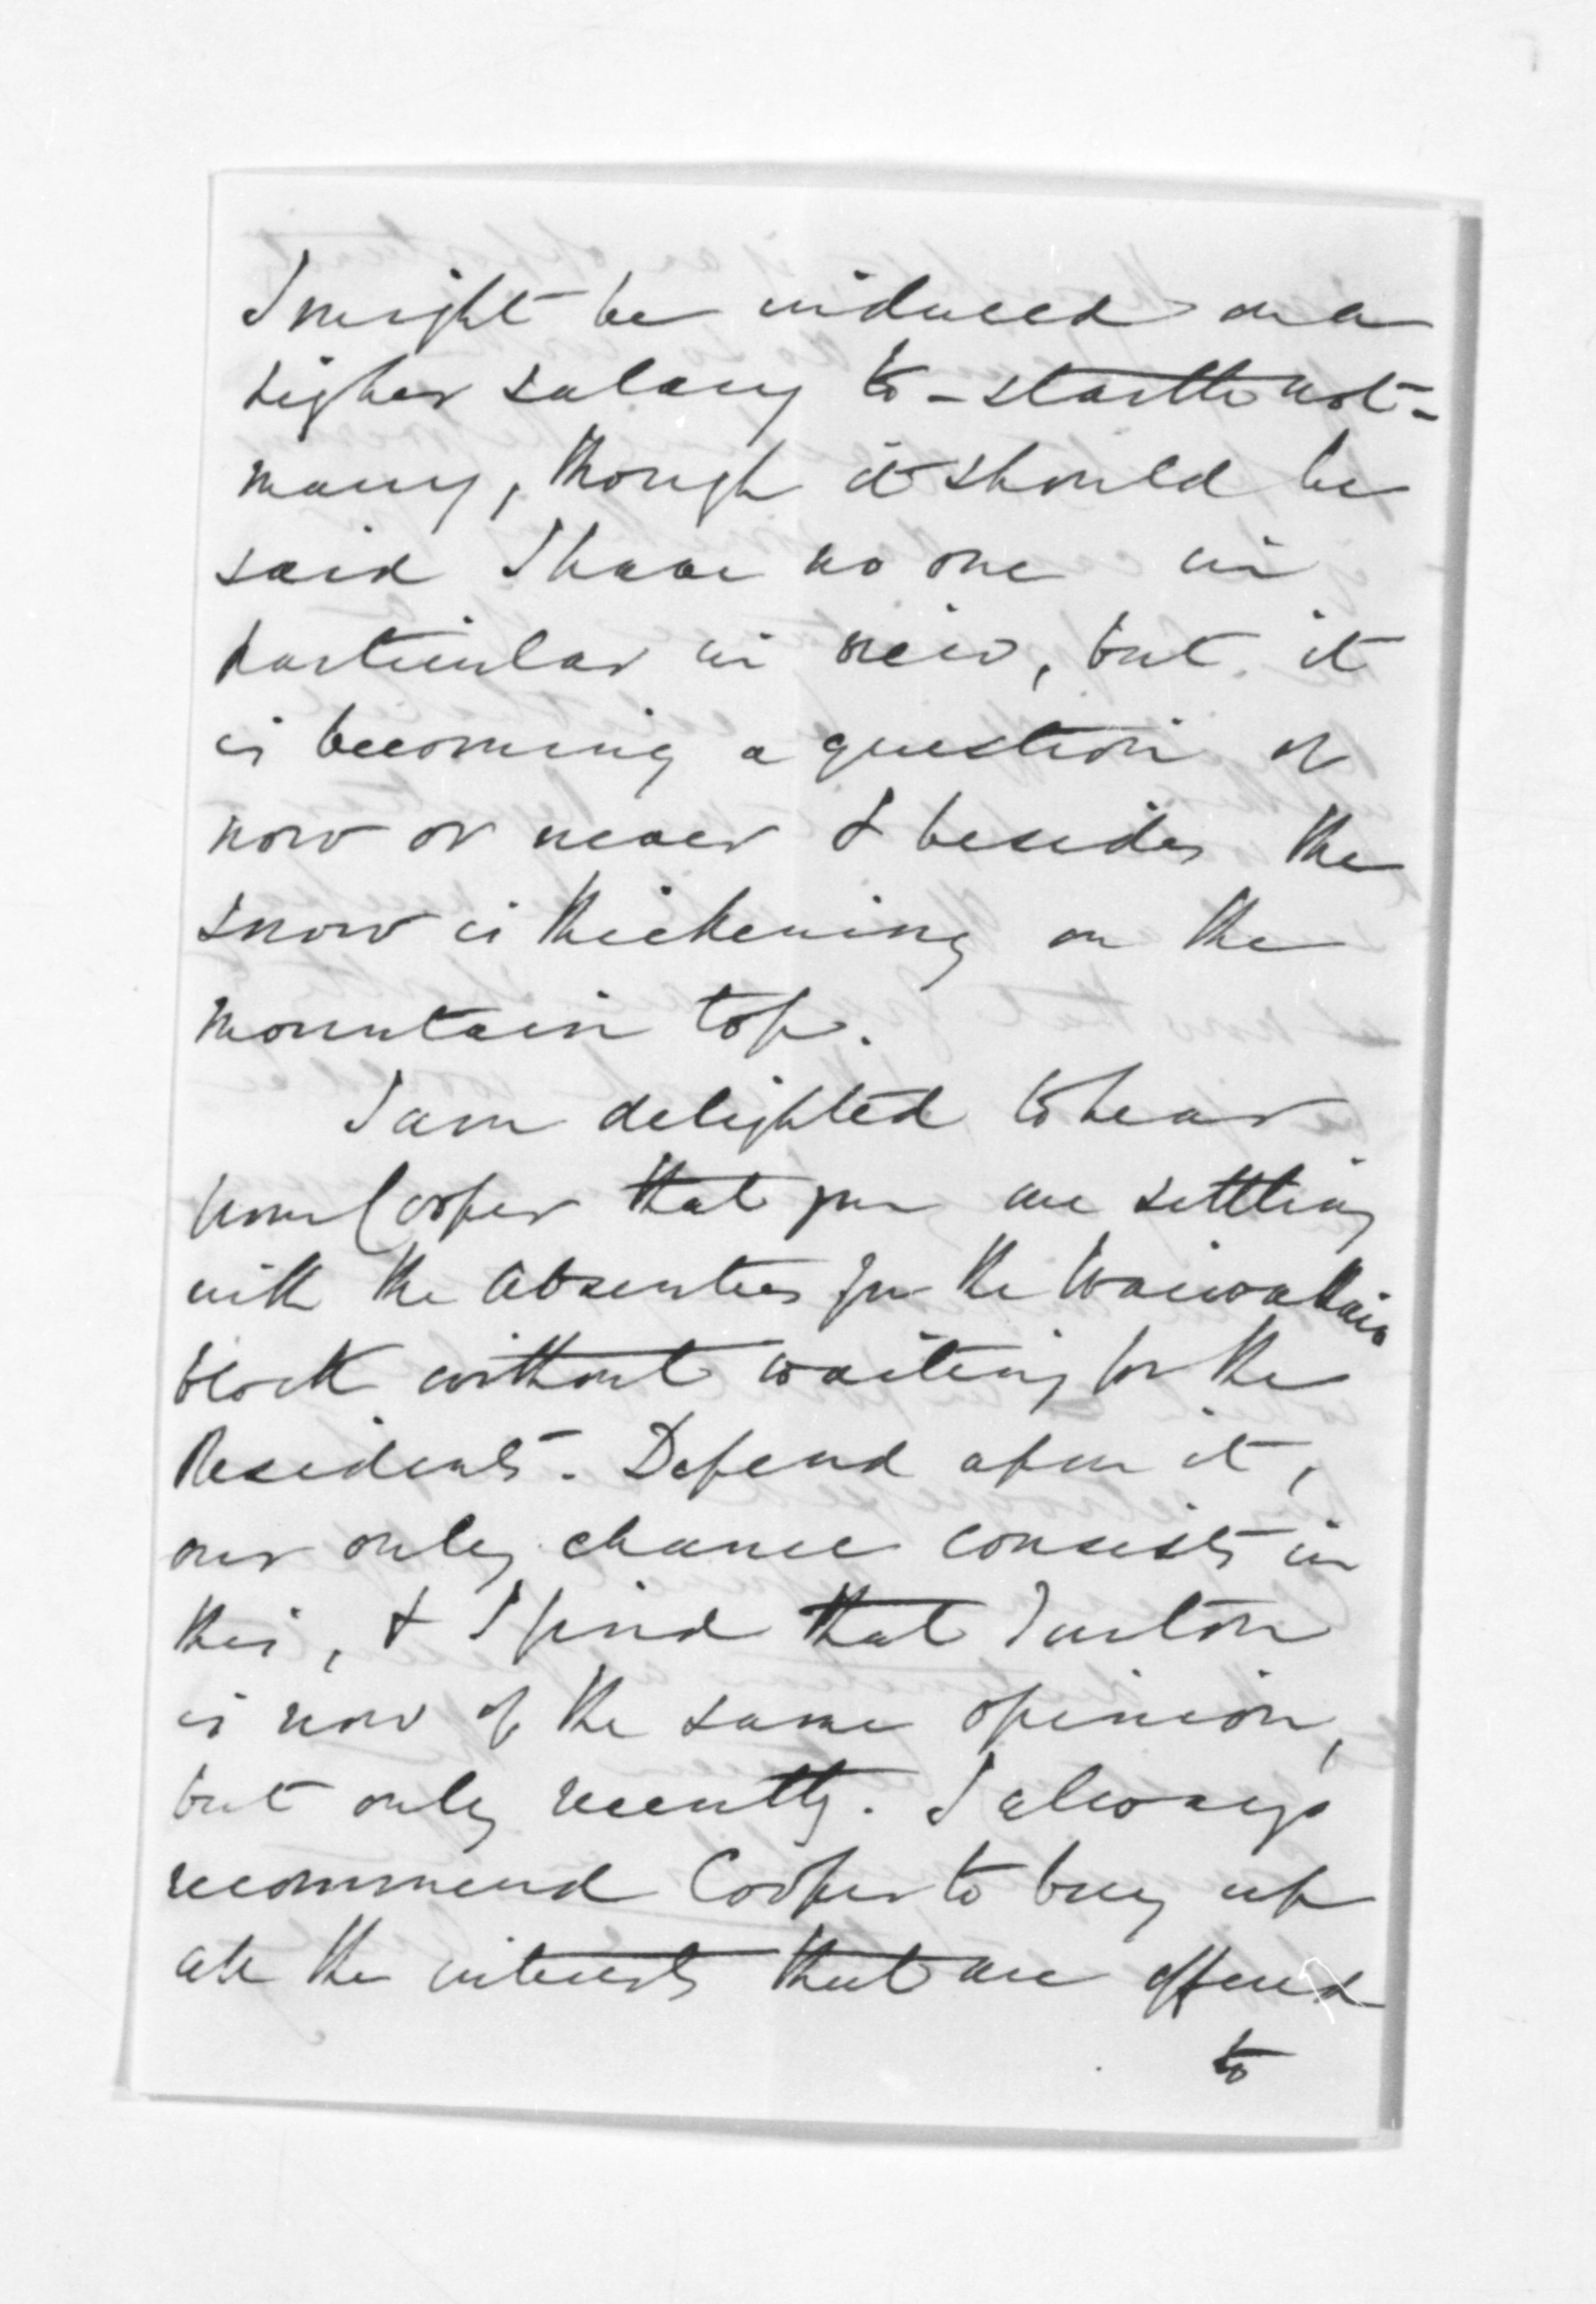 I might be induced on a
higher salary to - startle not -
marry, though it should be
said I have no one in
particular in view, but it
is becoming a question of
now or never & besides the
snow is thickening on the
mountain top.
I am delighted to hear
from Cooper that you are settling
with the Absentees for the Waiwakaio
block without waiting for the
Residents. Depend upon it,
our only chance consists in
this, & I find that Turton
is now of the same opinion,
but only recently. I always
recommend Cooper to buy up
all the interests that are offered
to